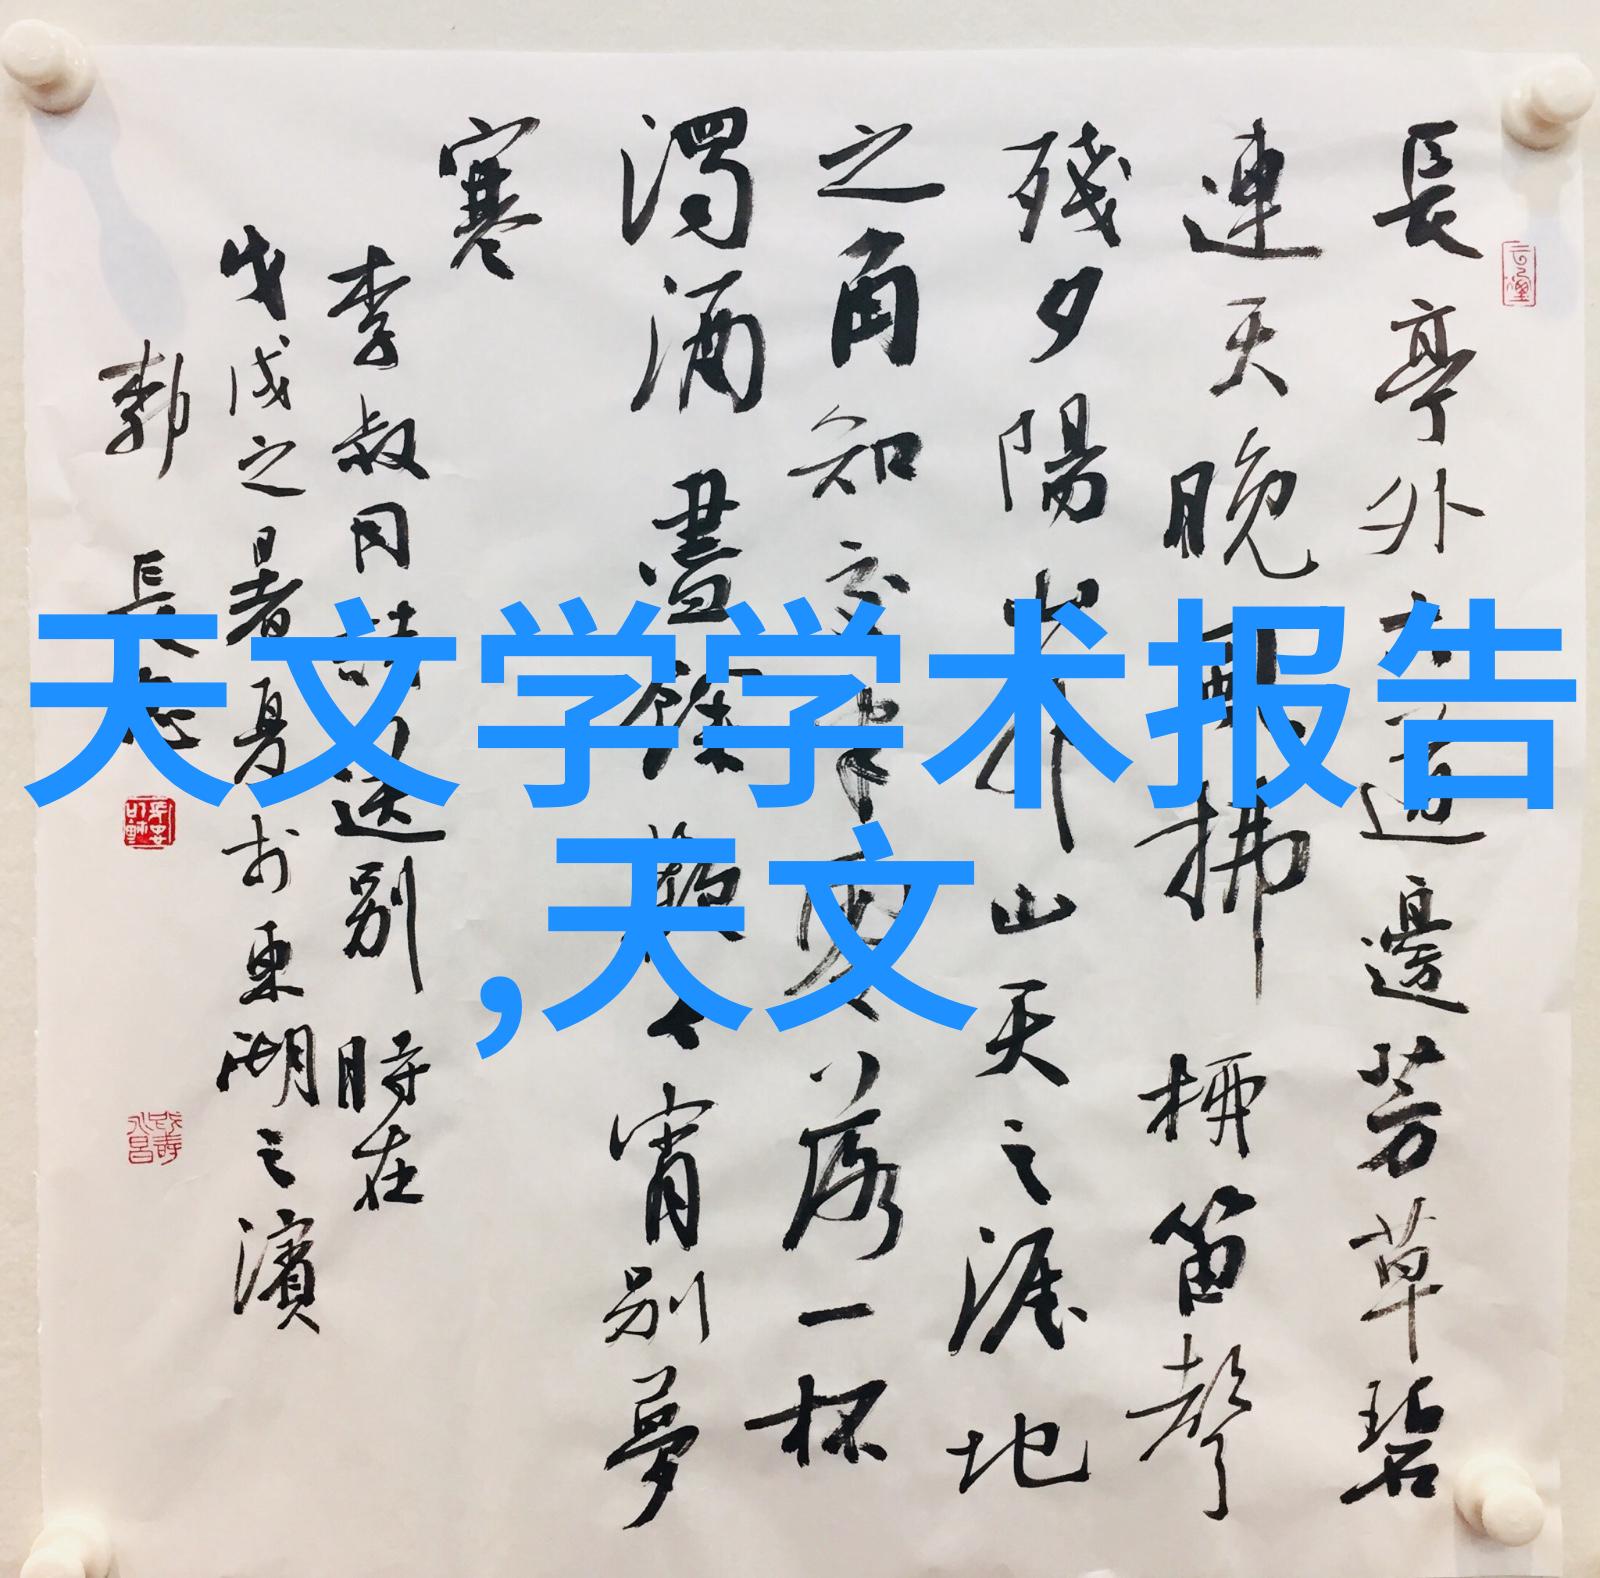 長亭外古道邊芳草碧
連天晚風拂柳笛聲
殘夕陽山外山天之涯地
之角知交半零落一杯
濁酒盡餘歡今宵別夢
寒
李叔同詩送別 時在
戊戌之暑夏於東湖之濱
長
天文学学术报告
,天文